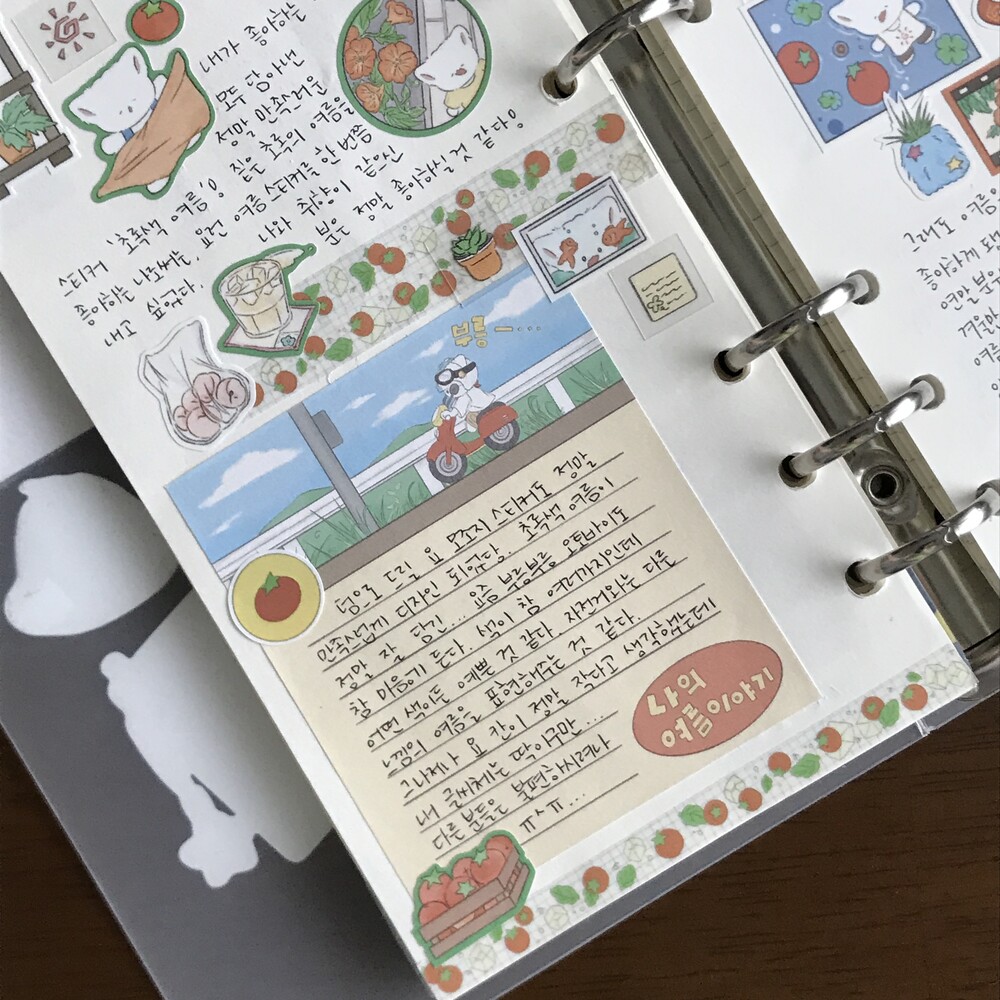 내가 좋아하는
모두 담아낸
정말 만족스러운
스티커 '초록색 여름'ㅇ 짙은 초록의 여름을
좋아하는 나로써는, 요런 여름 스티커를 한 번쯤
내고 싶었다. 나와 취향이 같으신
분은 정말 좋아하실 것 같다ㅇ
부릉 ー....
덤으로 드릴 요 모조지 스티커도 정말
만족스럽게 디자인 되었당. 초록색 여름이
정말 잘 담긴... 요즘 부릉부릉 오토바이도
참 마음에 든다. 색이 참 여러가지인데
어떤 색이든 예쁜 것 같다. 자전거와는 다른
느낌의 여름을 표현해주는 것 같다.
그나저나 요 칸이 정말 작다고 생각했는데
내 글씨체는 딱이구만...
다른 분들은 불편하시려나
ㅠㅅㅠ...
나의
여름이야기
그래도 여름
좋아하게 돼
연말 분
겨울
여름